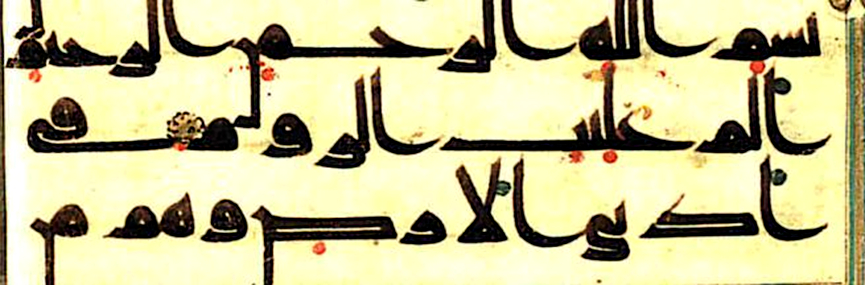 بسم الله الرحمن الرحيم
الم غلبت الروم في
ادنى الارض وهم من